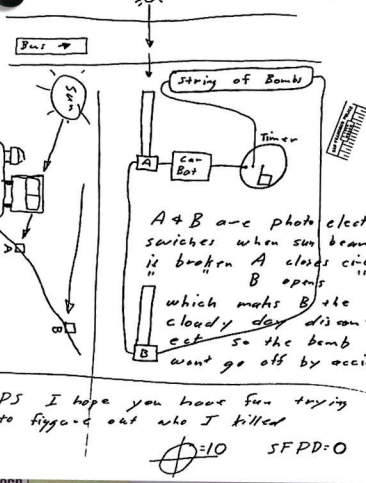 Bus
String of Bombs
Sun
Timer
A
Car
Bat
A
B
B
A & B are photo elect
swiches when sun beam
is broken A closes cir
" " B opens "
which mahs B the
cloudy day discon
ect so the bomb
wont go off by acci
PS I hope you have fun trying
to figgure out who I killed
=10 SFPD=0